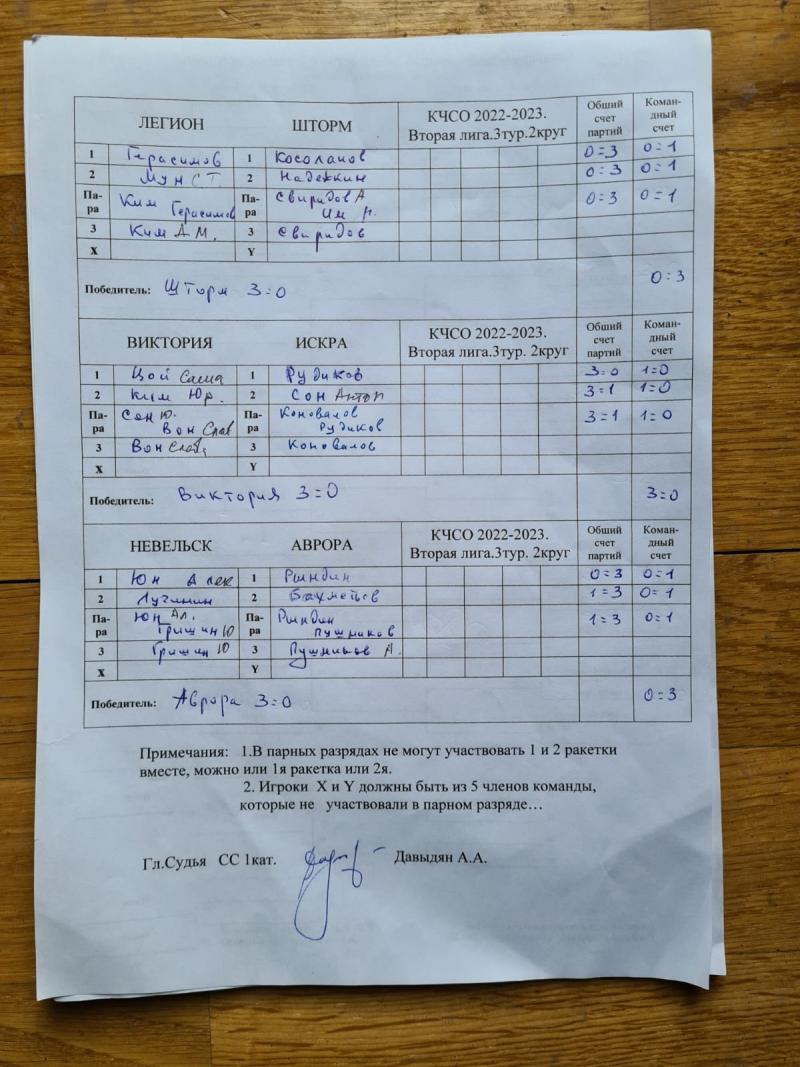 ЛЕГИОН ШТОРМ КЧСО 2022-2023. Вторая лига.3тур.2круг Общий счет партий Коман-дный счет
1 Герасимов 1 Косолапов 0=3 0=1
2 Мун С Т 2 Надежкин 0=3 0=1
Па-ра Ким Герасимов Па-ра Свиридов А 0=3 0=1
3 Ким А М. 3 Свиридов
X Y
Победитель: Шторм 3=0 0=3
ВИКТОРИЯ ИСКРА КЧСО 2022-2023. Вторая лига.3тур. 2круг Общий счет партий Коман-дный счет
1 Цой Саша 1 Рудиков 3=0 1=0
2 Ким Юр. 2 Сон Антон 3=1 1=0
Па-ра Сон Ю. Вон Слав Па-ра Коновалов Рудиков 3=1 1=0
3 Вон Слав 3 Коновалов
X Y
Победитель: Виктория 3=0 3=0
НЕВЕЛЬСК АВРОРА КЧСО 2022-2023. Вторая лига.3тур. 2круг Общий счет партий Коман-дный счет
1 Юн Алек 1 Рындин 0=3 0=1
2 Лучинин 2 Бахметьев 1=3 0=1
Па-ра Юн Ал. Гришин Ю Па-ра Рындин Пушников 1=3 0=1
3 Гришин Ю 3 Пушников А.
X Y
Победитель: Аврора 3=0 0=3
Примечания: 1.В парных разрядах не могут участвовать 1 и 2 ракетки
вместе, можно или 1я ракетка или 2я.
2. Игроки X и Y должны быть из 5 членов команды,
которые не участвовали в парном разряде…
Гл.Судья СС 1кат. Давыдян А.А.